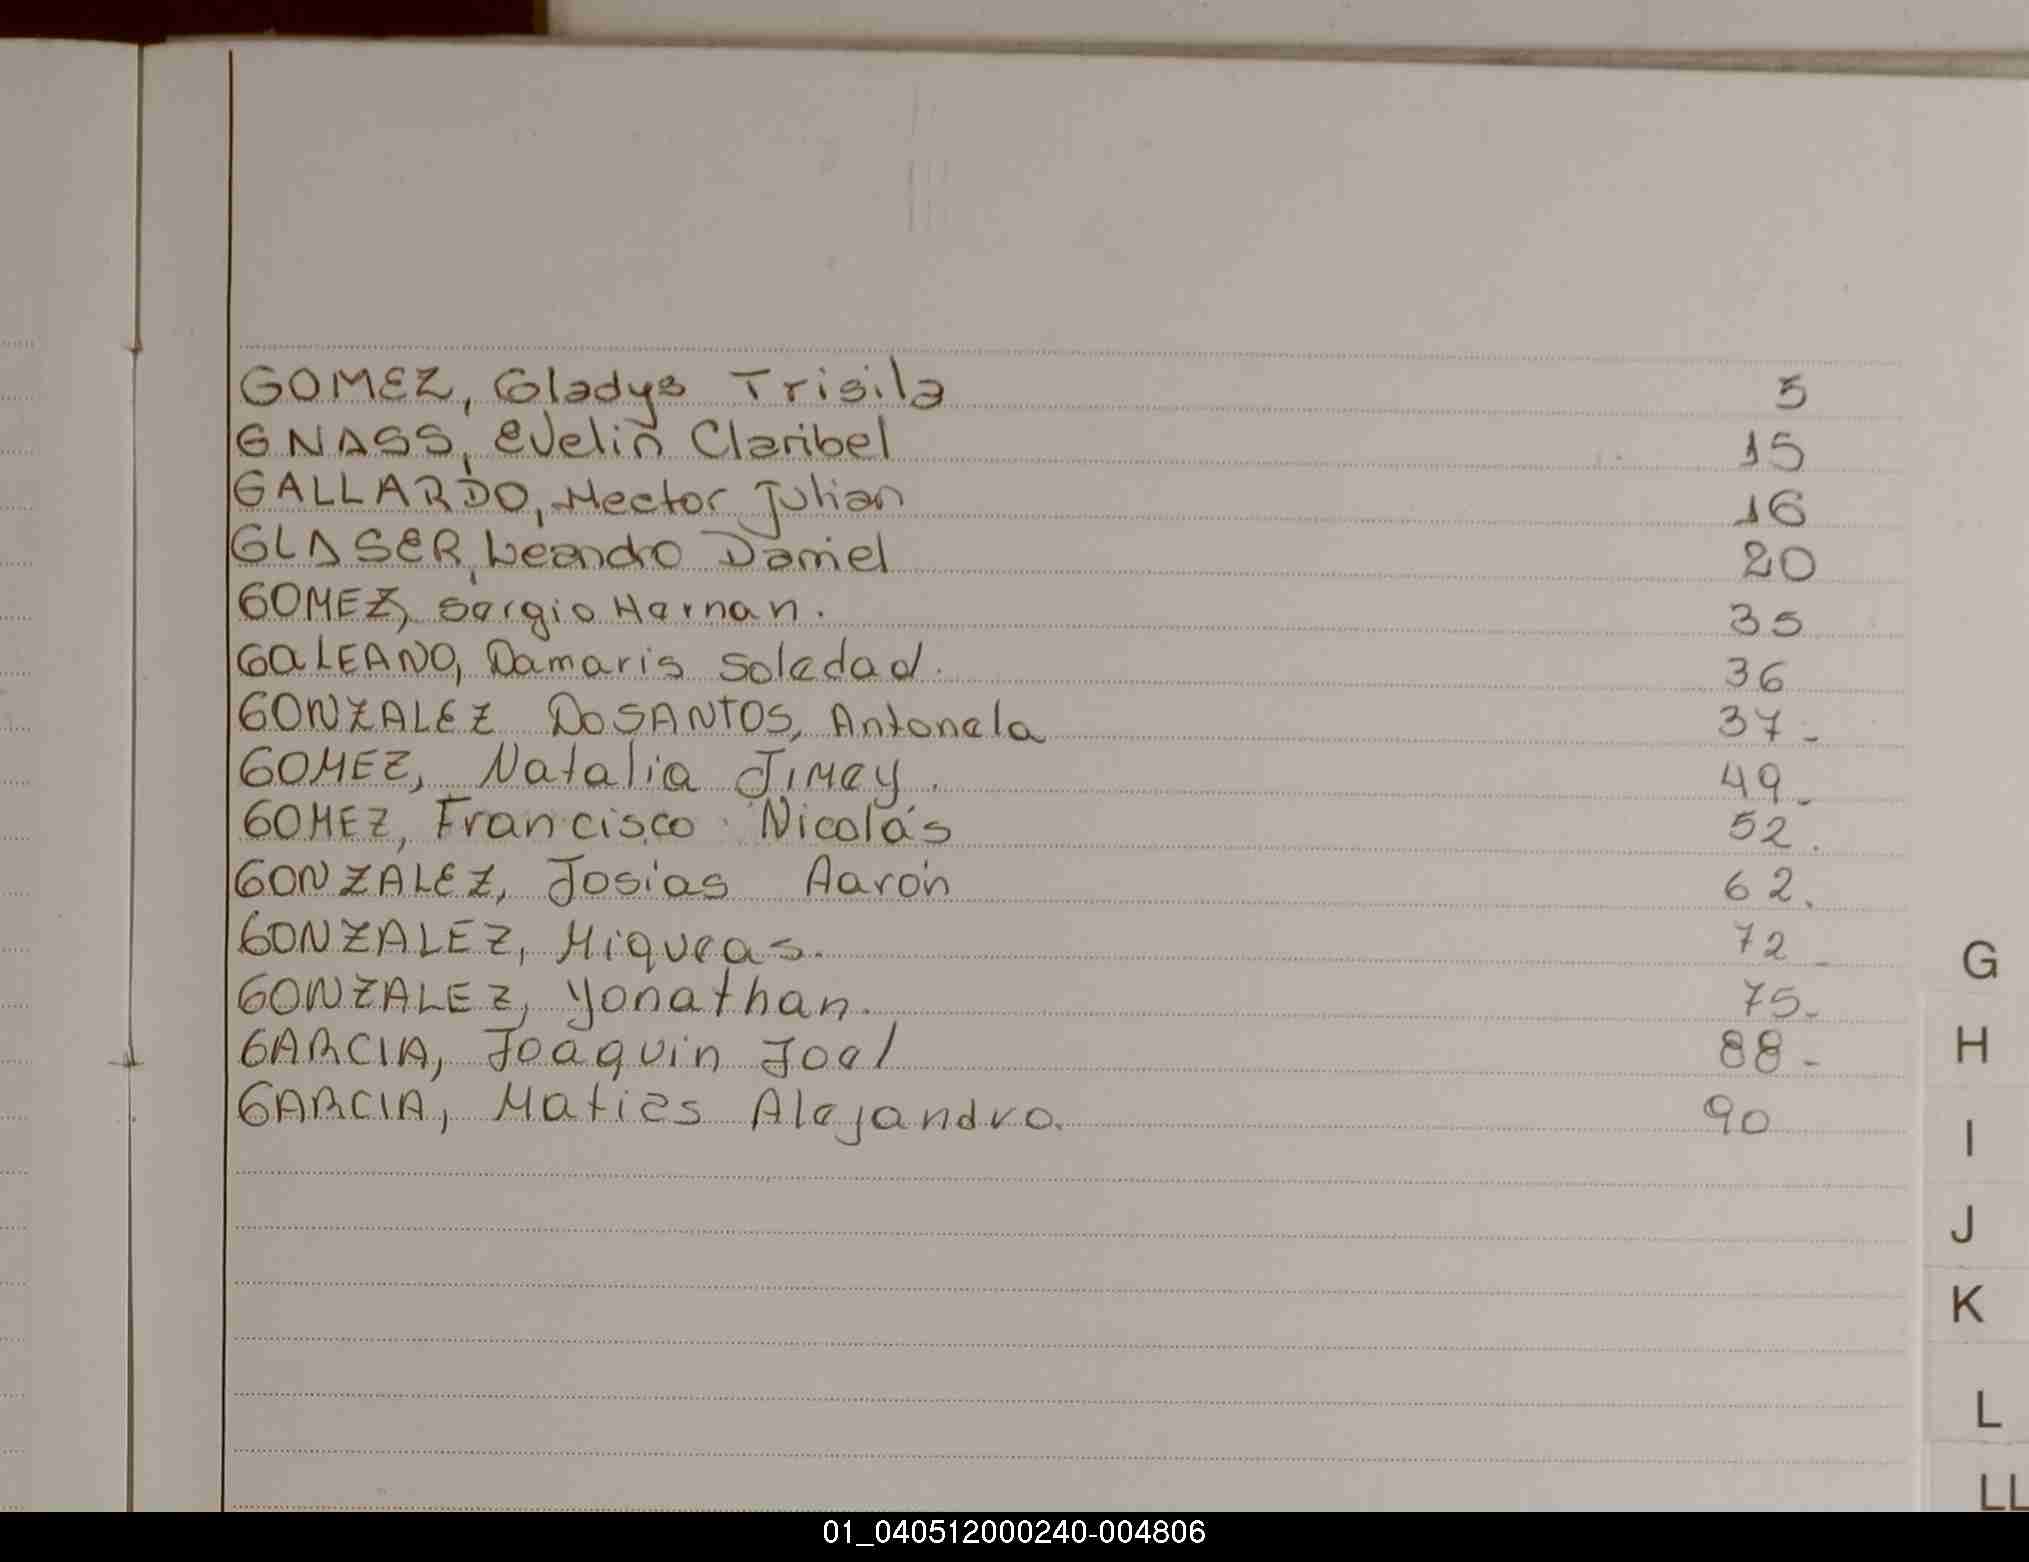 GOMEZ, Gladys Trisila 5
GNASS, Evelin Claribel 15
GALLARDO, Hector Julian 16
GLASER, Leandro Daniel 20
GOMEZ, Sergio Hernan. 35
GALEANO, Damaris Soledad. 36
GONZALEZ DoSANTOS, Antonela 37-
GOMEZ, Natalia Jimey. 49-
GOMEZ, Francisco Nicolás 52.
GONZALEZ, Josías Aarón 62.
GONZALEZ, Miqueas. 72-
GONZALEZ, Yonathan. 75-
GARCIA, Joaquin Joel 88-
GARCIA, Matias Alejandro. 90
G
H
I
J
K
L
LL
01_040512000240-004806